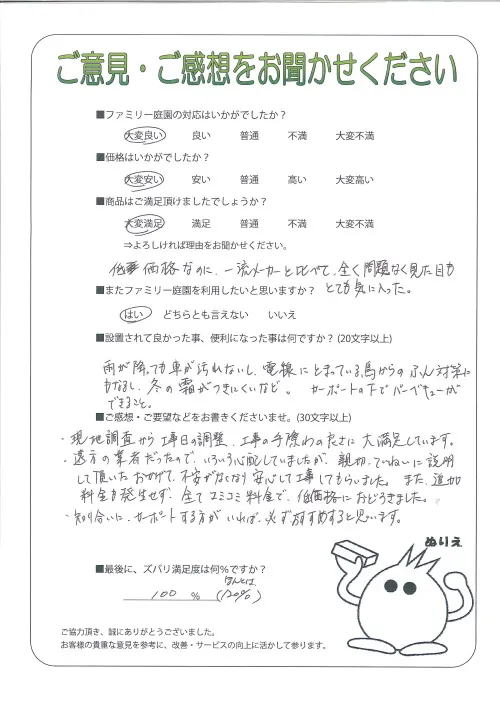 ご意見・ご感想をお聞かせください
■ファミリー庭園の対応はいかがでしたか？
大変良い 良い 普通 不満 大変不満
■価格はいかがでしたか？
大変安い 安い 普通 高い 大変高い
■商品はご満足頂けましたでしょうか？
大変満足 満足 普通 不満 大変不満
⇒よろしければ理由をお聞かせください。
低価格なのに、一流メーカーと比べて、全く問題なく見た目も
とても気に入った。
■またファミリー庭園を利用したいと思いますか？
はい どちらとも言えない いいえ
■設置されて良かった事、便利になった事は何ですか？(20文字以上)
雨が降っても車が汚れないし、電線にとまっている鳥からのふん対策に
もなるし、冬の霜がつきにくいなど。 カーポートの下でバーベキューが
できること。
■ご感想・ご要望などをお書きくださいませ。(30文字以上)
・現地調査から工事日の調整、工事の手際の良さに大満足しています。
・遠方の業者だったので、いろいろ心配していましたが、親切、ていねいに説明
して頂いたおかげで、不安がなくなり安心して工事してもらいました。また、追加
料金も発生せず、全てコミコミ料金で、低価格におどろきました。
・知り合いに、カーポートする方がいれば、必ずおすすめすると思います。
ぬりえ
■最後に、ズバリ満足度は何%ですか？
ほんとは
100 % (120%)
ご協力頂き、誠にありがとうございました。
お客様の貴重な意見を参考に、改善・サービスの向上に活かして参ります。